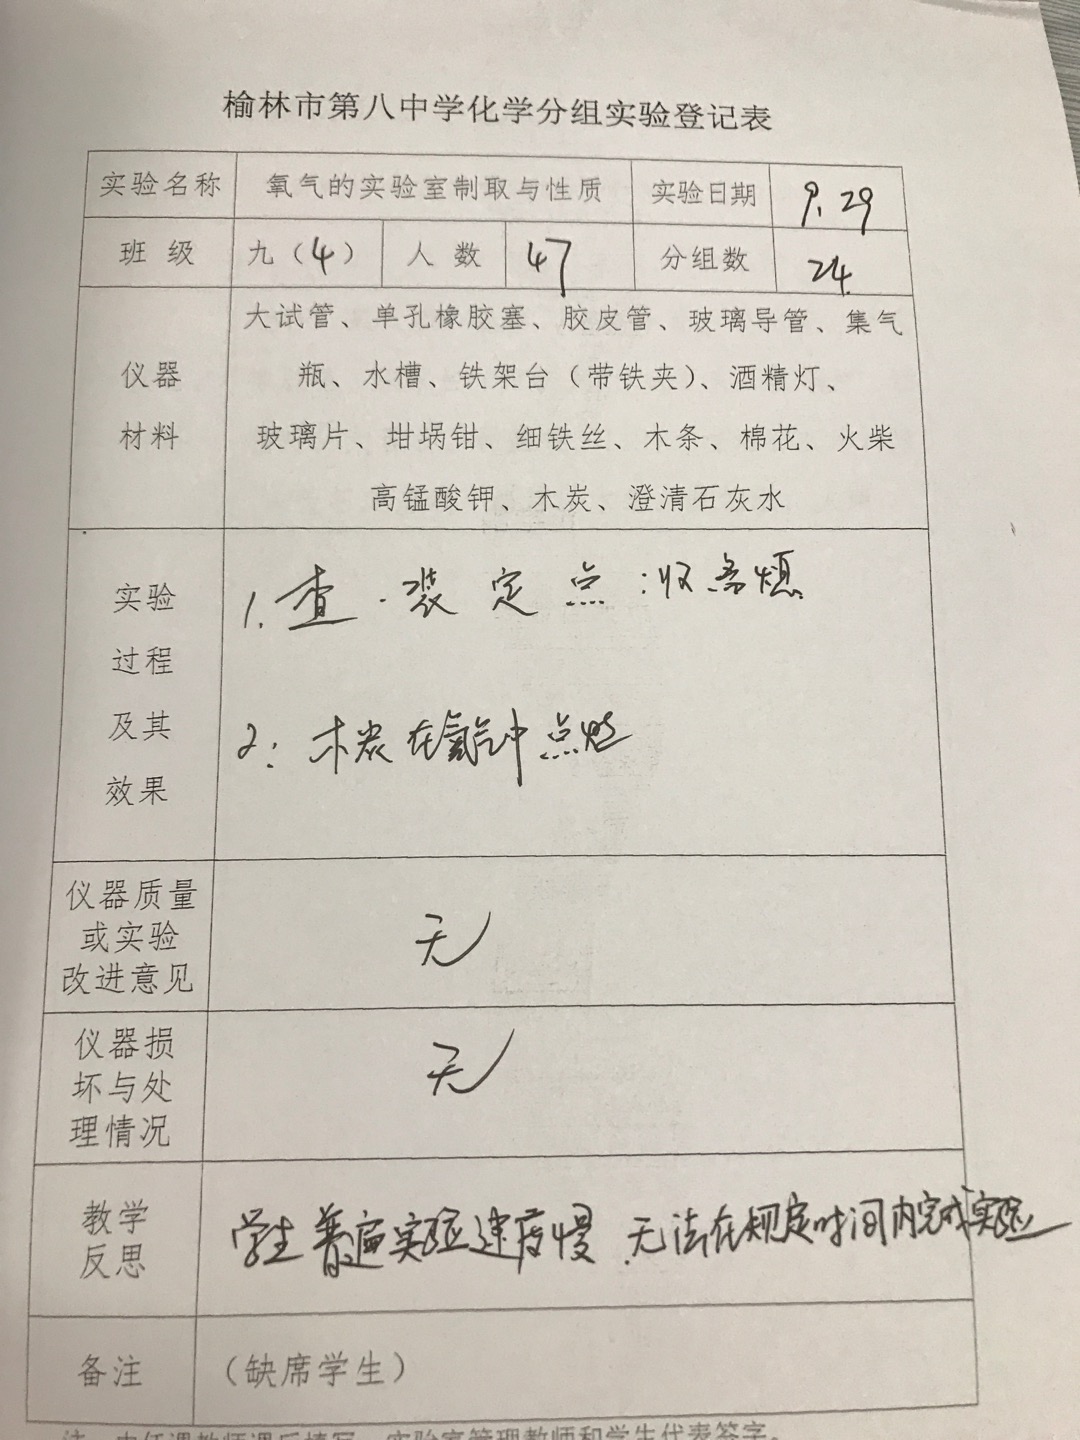 榆林市第八中学化学分组实验登记表
实验名称 氧气的实验室制取与性质 实验日期 9.29
班级 九（4） 人数 47 分组数 24
仪器材料
大试管、单孔橡胶塞、胶皮管、玻璃导管、集气
瓶、水槽、铁架台（带铁夹）、酒精灯、
玻璃片、坩埚钳、细铁丝、木条、棉花、火柴
高锰酸钾、木炭、澄清石灰水
实验
过程
及其
效果
1. 查.装定点:收 熄
2: 木炭在氧气中点燃
仪器质量
或实验
改进意见
无
仪器损
坏与处
理情况
无
教学
反思
学生普遍实验速度慢 无法在规定时间内完成实验
备注 （缺席学生）
注：由任课教师课后填写，实验室管理教师和学生代表签字。